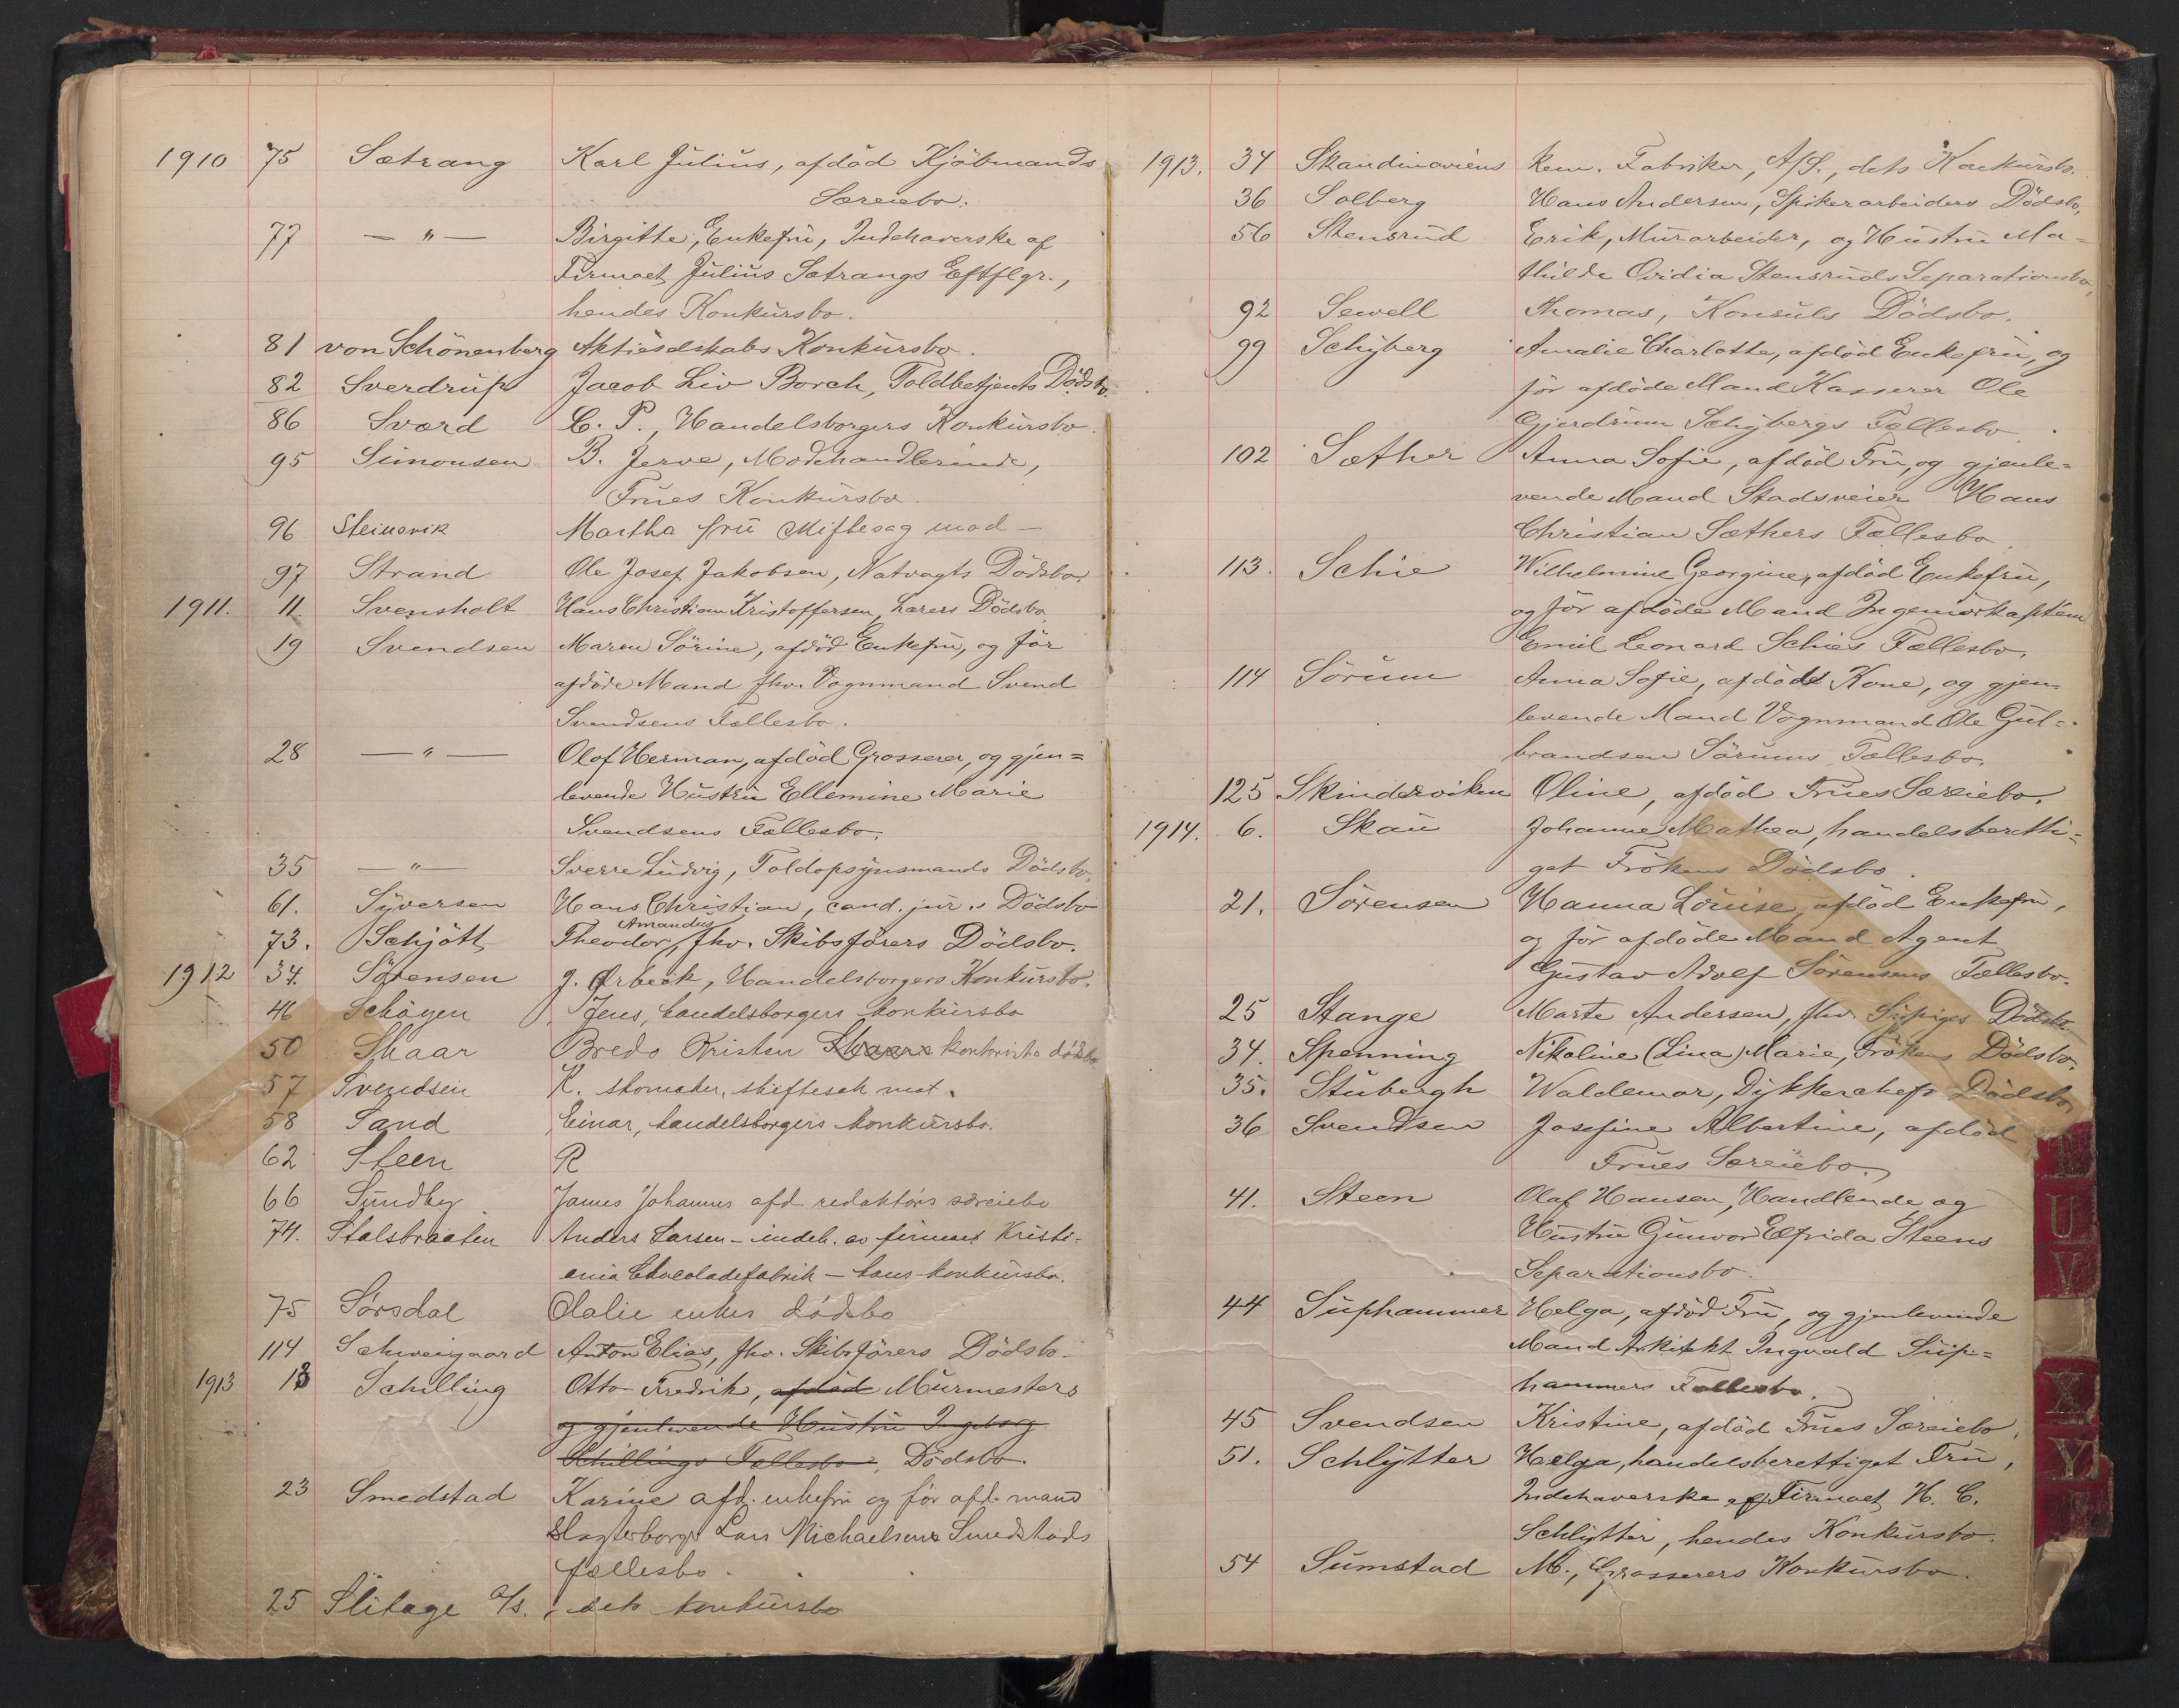 1910 75 Sætrang Karl Julius, afdöd Kjöbmands
Særeiebo.
77 — " — Birgitte, Enkefru, Indehaverske af
Firmaet Julius Sætrangs Eftflgr.,
hendes Konkursbo.
81 von Schönenberg Aktieselskabs Konkursbo.
82 Sverdrup Jacob Liv Borch, Toldbetjents Dödsbo.
86 Sværd C. P., Handelsborgers Konkursbo.
95 Simonsen B. Jerve, Modehandlerinde,
Frues Konkursbo.
96 Steinsvik Martha fru Skiftesag mod —
97 Strand Ole Josef Jakobsen, Natvagts Dödsbo.
1911. 11 Svensholt Hans Christian Kristoffersen, Lærers Dödsbo.
19 Svendsen Maren Sörine, afdöd Enkefru, og för
afdöde Mand fhv. Vognmand Svend
Svendsens Fællesbo.
28 — " — Olof Herman, afdöd Grosserer, og gjen=
levende Hustru Ellemine Marie
Svendsens Fællesbo.
35 — " — Sverre Ludvig, Toldopsynsmands Dödsbo.
61. Syversen Hans Christian, cand. jur.s Dödsbo
73. Schjött Theodor Amandus, fhv. Skibsförers Dödsbo.
1912 34. Sörensen J. Ørbeck, Handelsborgers Konkursbo.
46 Schøyen Jens, handelsborgers konkursbo
50 Skaar Bredo Kristen Skaars kontorists dödsbo
57 Svendsen K. skomaker, skiftesak mot.
58 Sand Einar, handelsborgers konkursbo.
62 Steen R
66 Sundby James Johannes afd. redaktörs særeiebo
74. Stalsbraaten Anders Larsen – indeh. av firmaet Kristi-
ania Chocoladefabrik – hans konkursbo.
75 Sørsdal Olalie enkes dödsbo
114 Schweigaard Anton Elias, fhv. Skibsförers Dödsbo.
1913 13 Schilling Otto Fredrik, afdöd Murmesters
og gjenlevende Hustru Ingeborg
Schillings Fællesbo, Dödsbo.
23 Smedstad Karine afd. enkefru og för afd. mand
Slagterborger Lars Michaelsens Smedstads
fællesbo.
25 Slitage A/s., dets konkursbo
1913. 34 Skandinaviens kem. Fabriker, A/S., dets Konkursb.
36 Solberg Hans Andersen, Spikerarbeiders Dödsbo,
56 Stensrud Erik, Murarbeider, og Hustru Ma=
thilde Ovidia Stensruds Separationsbo,
92 Sewell Thomas, Konsuls Dödsbo.
99 Schyberg Amalie Charlotte, afdöd Enkefru, og
för afdöde Mand Kasserer Ole
Gjerdrum Schybergs Fællesbo.
102 Sæther Anna Sofie, afdöd Fru, og gjenle=
vende Mand Stadsveier Hans
Christian Sæthers Fællesbo
113. Schie Wilhelmine Georgine, afdöd Enkefru,
og för afdöde Mand Ingeniörkaptein
Emil Leonard Schies Fællesbo.
114 Sörum Anna Sofie, afdöd Kone, og gjen=
levende Mand Vognmand Ole Gul=
brandsen Sörums Fællesbo.
125 Skinderviken Oline, afdöd Frues Særeiebo.
1914. 6. Skau Johanne Mathea, handelsberetti=
get Frökens Dödsbo.
21. Sörensen Hanna Louise, afdöd Enkefru,
og för afdöde Mand Agent
Gustav Adolf Sörensens Fællesbo.
25 Stange Marte Andersen, fhv. Sypiges Dödsbo
34. Spenning Nikoline (Lina) Marie, Frökens Dödsbo.
35. Stubergh Waldemar, Dykkerchefs Dödsbo
36 Svendsen Josefine Albertine, afdöd
Frues Særeiebo.
41. Steen Olaf Hansen, Handlende og
Hustru Gunvor Elfrida Steens
Separationsbo.
44 Suphammer Helga, afdöd Fru, og gjenlevende
Mand Arkitekt Ingvald Sup=
hammers Fællesbo.
45 Svendsen Kristine, afdöd Frues Særeiebo,
51. Schlytter Helga, handelsberettiget Fru,
Indehaverske af Firmaet H. C.
Schlytter, hendes Konkursbo.
54 Sumstad M., Grosserers Konkursbo.
U
V
X
Y